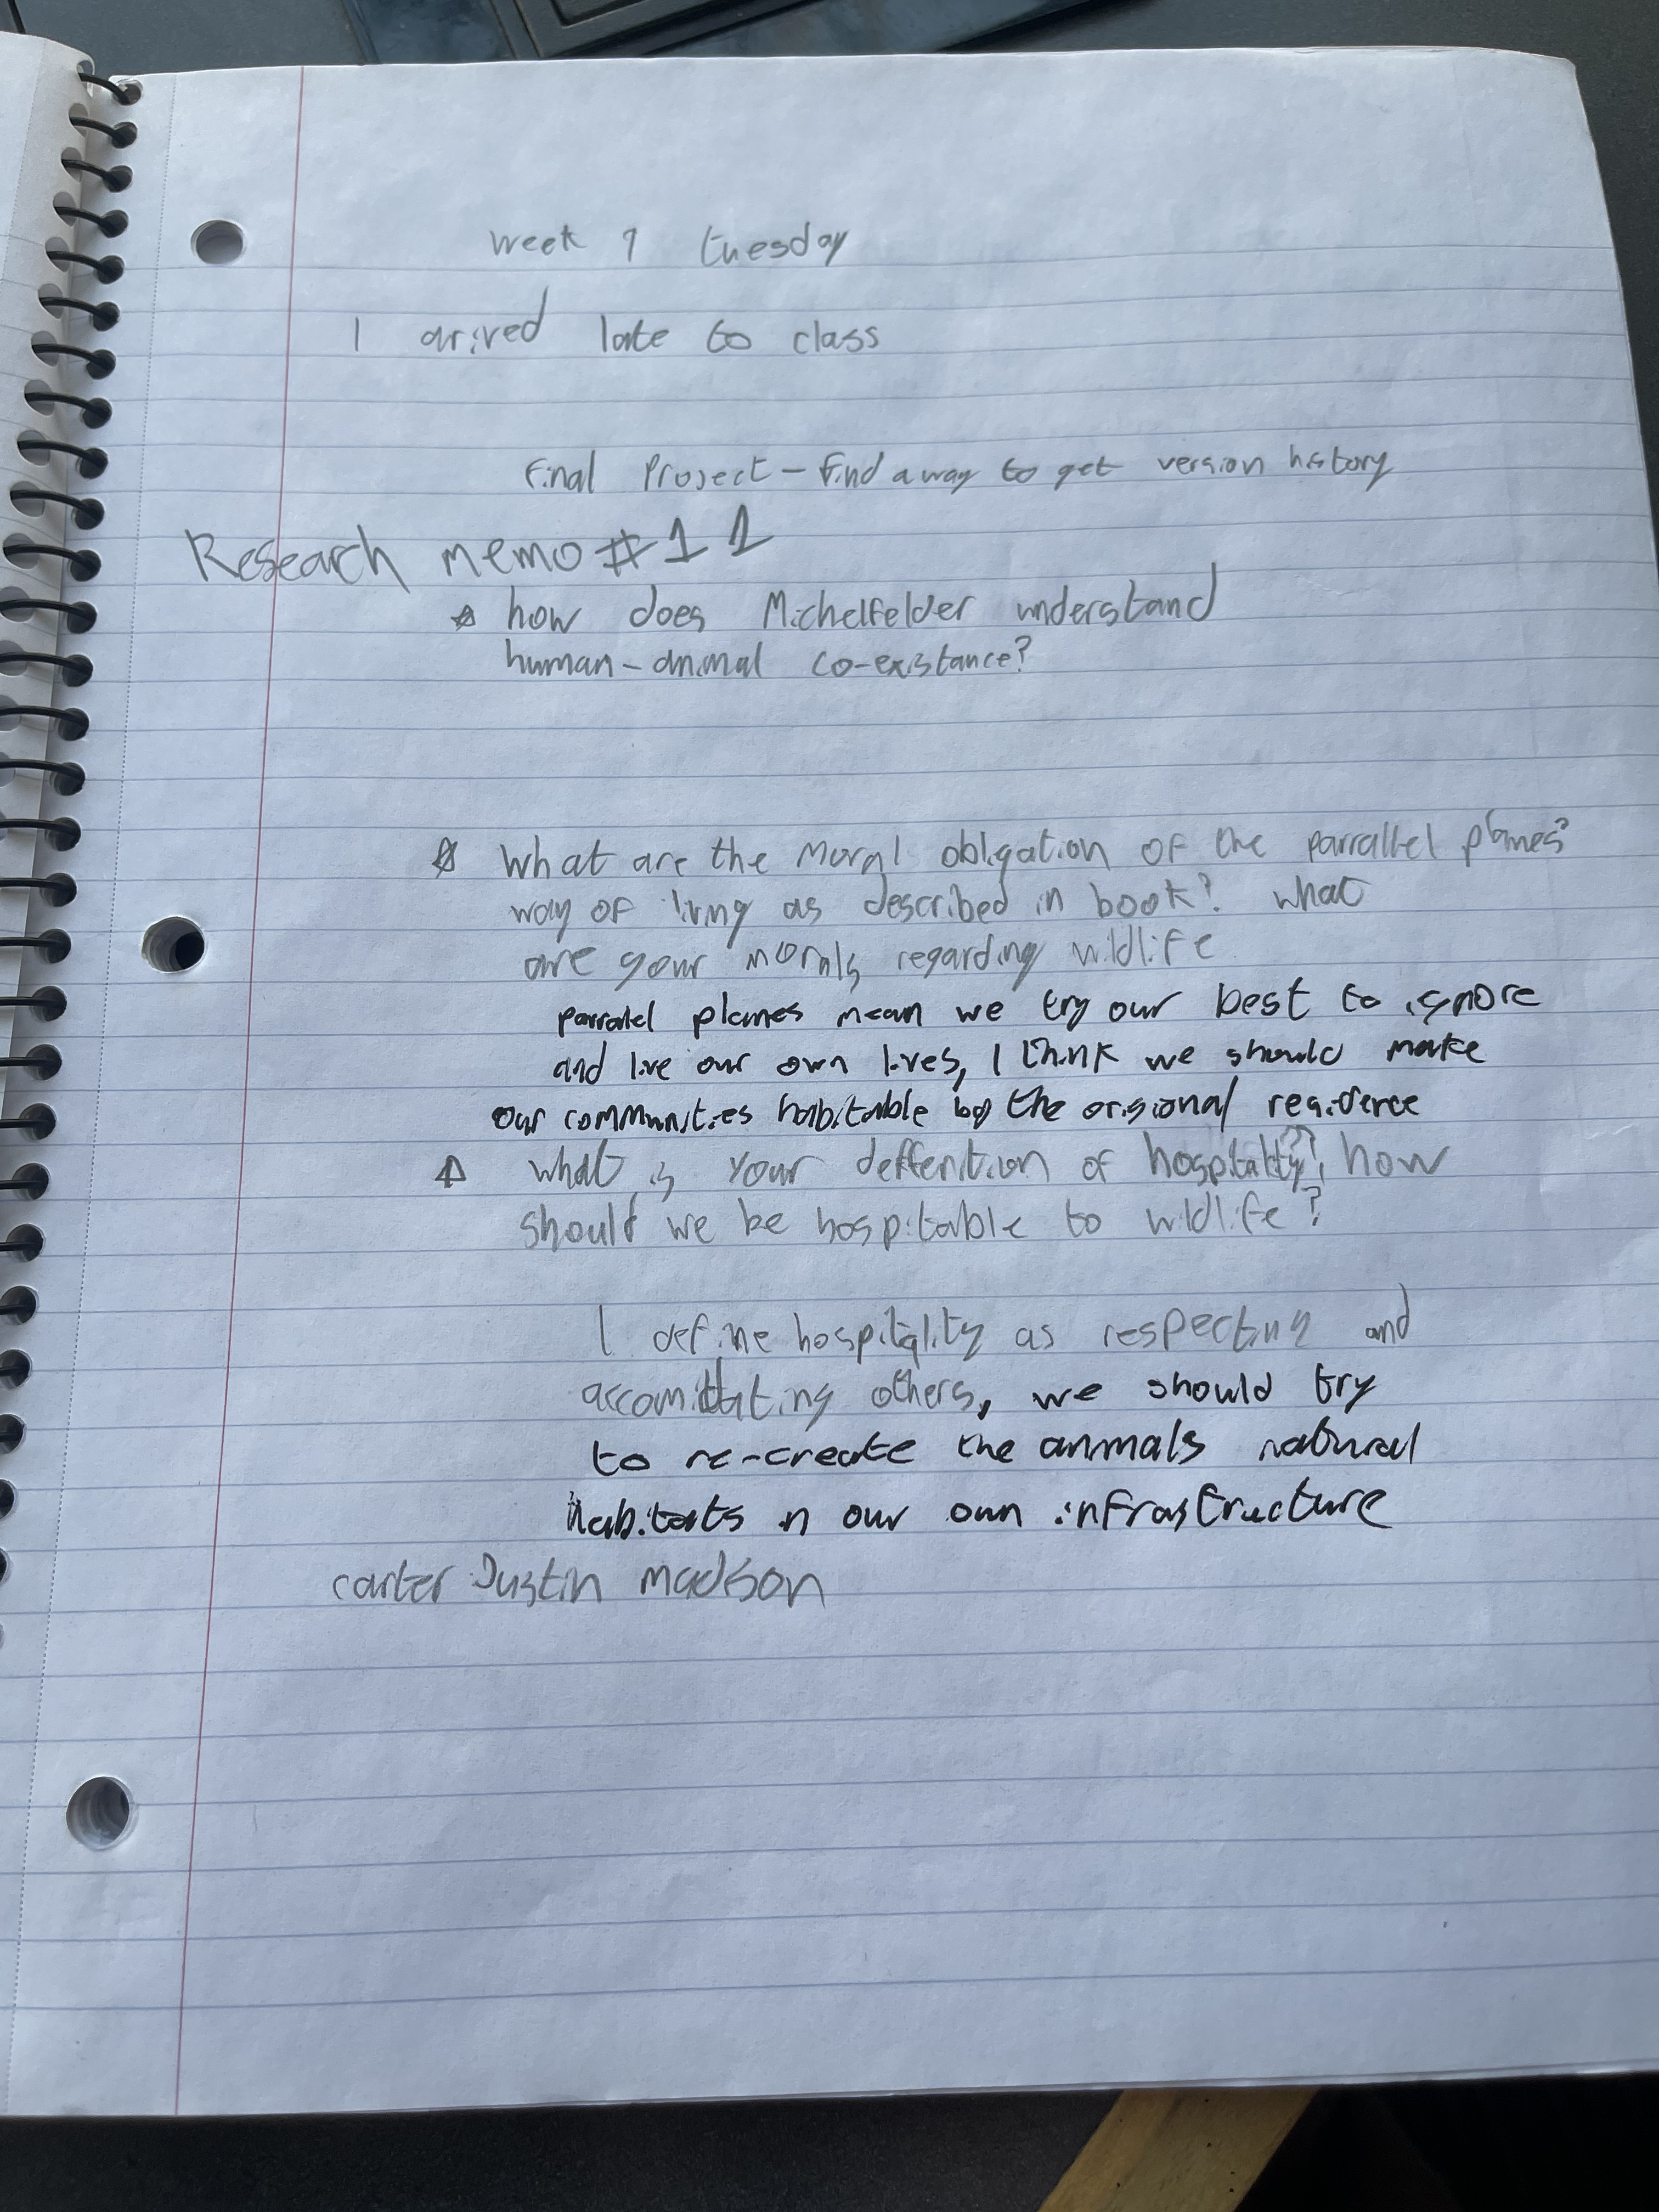 week 9 tuesday
I arived late to class
Final Project - Find a way to get version history
Research memo #11
how does Michelfelder understand
human-animal co-existance?
What are the moral obligation of the parrallel planes?
way of living as described in book? what
are your morals regarding wildlife
parralel planes mean we try our best to ignore
and live our own lives, I think we should make
our communities habitable by the origional residence
what is your deffenition of hospitality?, how
should we be hospitable to wildlife?
I define hospitality as respecting and
accomidating others, we should try
to re-create the animals natural
habitats in our own infrastructure
carter Justin madison